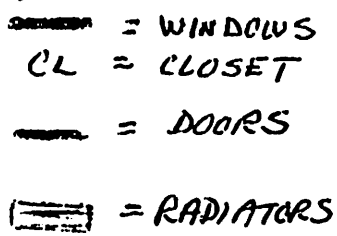 = WINDOWS
CL = CLOSET
= DOORS
= RADIATORS